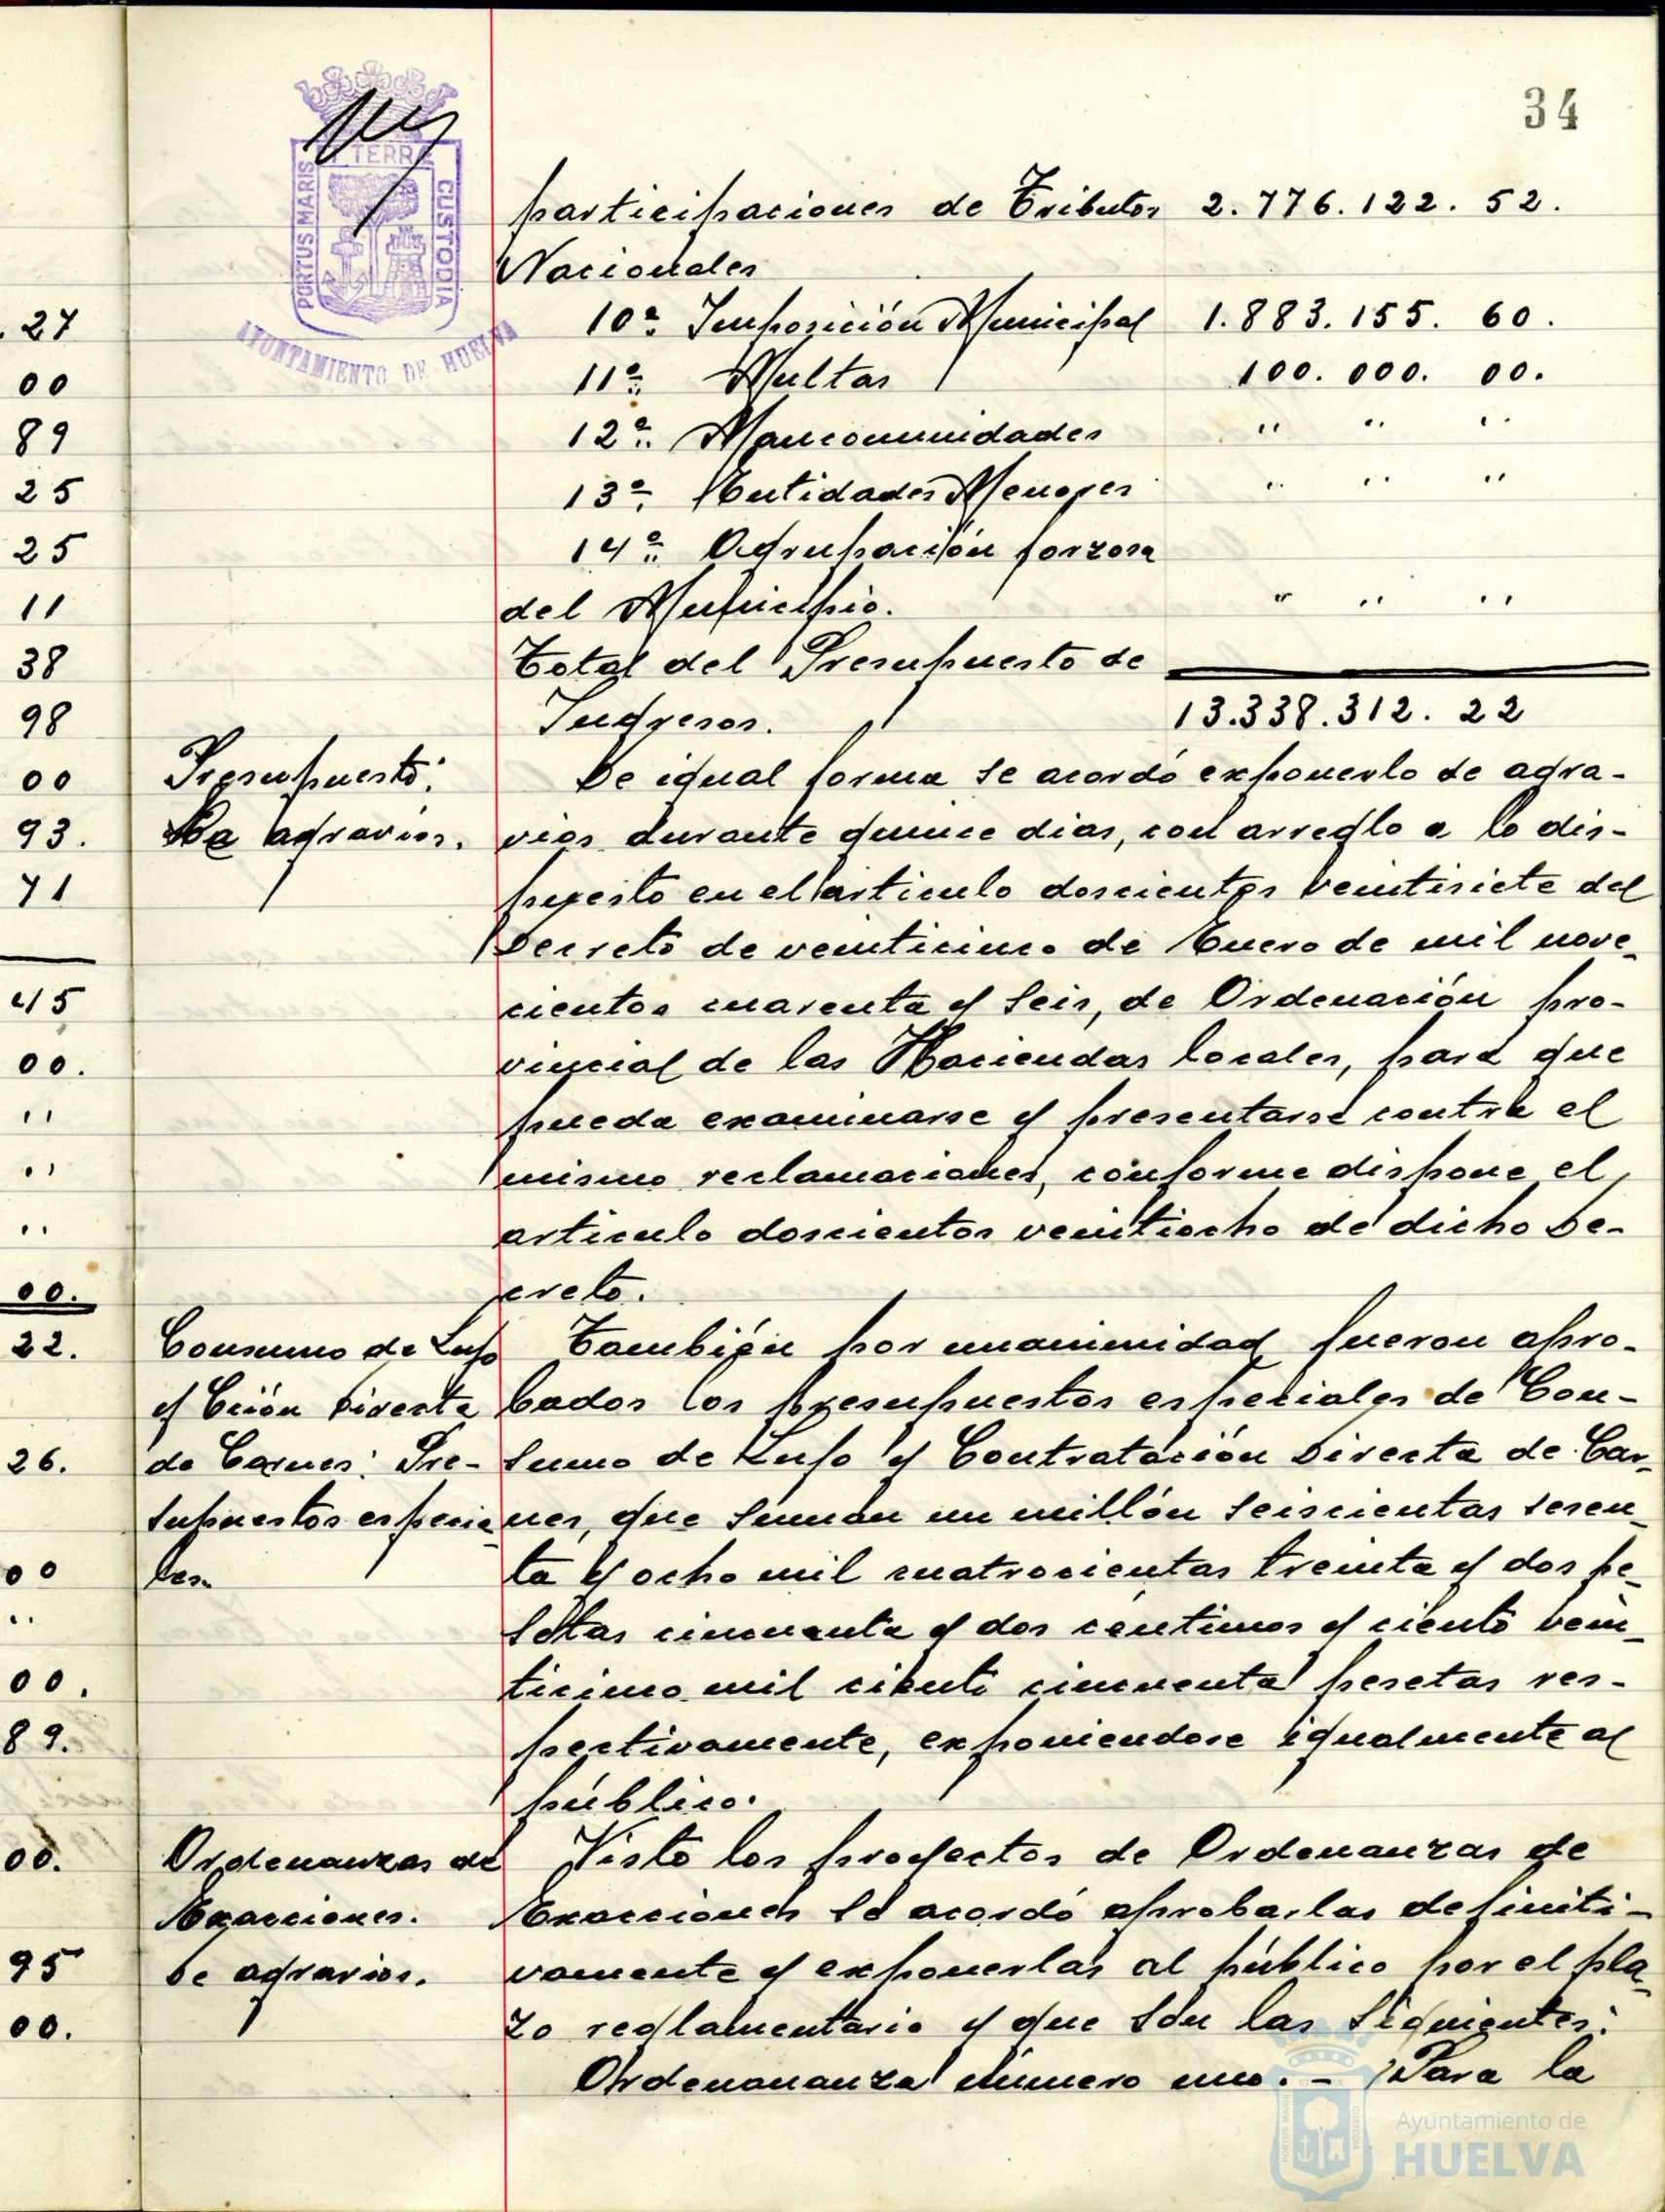 34
PORTUS MARIS
TERRÆ
CUSTODIA
AYUNTAMIENTO DE HUELVA
participaciones de Tributos 2.776.122. 52.
Nacionales
10ª: Imposición Municipal 1.883.155. 60.
11ª: Multas 100.000. 00.
12ª: Mancomunidades " " "
13ª: Entidades Menores " " "
14ª: Agrupación forzosa
del Municipio. " " "
Total del Presupuesto de
Ingresos. 13.338.312. 22
Presupuesto:
De agravios.
De igual forma se acordó exponerlo de agra-
vios durante quince dias, con arreglo a lo dis-
puesto en el artículo doscientos veintisiete del
Decreto de veinticinco de Enero de mil nove-
cientos cuarenta y seis, de Ordenación pro-
vincial de las Haciendas locales, para que
pueda examinarse y presentarse contra el
mismo reclamaciones, conforme dispone el
artículo doscientos veintiocho de dicho De-
creto.
Consumo de Lujo
y Cción Directa
de Carnes: Pre-
supuestos especia-
les.
También por unanimidad fueron apro-
bados los presupuestos especiales de Con-
sumo de Lujo y Contratación Directa de Car-
nes, que suman un millón seiscientas sesen-
ta y ocho mil cuatrocientas treinta y dos pe-
setas cincuenta y dos céntimos y ciento vein-
ticinco mil ciento cincuenta pesetas res-
pectivamente, exponiendose igualmente al
público.
Ordenanzas de
Exacciones.
De agravios.
Visto los proyectos de Ordenanzas de
Exacciones se acordó aprobarlas definiti-
vamente y exponerlas al público por el pla-
zo reglamentario y que son las siguientes:
Ordenananza número uno. - Para la
. 27
00
89
25
25
11
38
98
00
93.
71
45
00.
"
"
"
00.
22.
26.
00
"
00.
89.
00.
95
00.
Ayuntamiento de
HUELVA